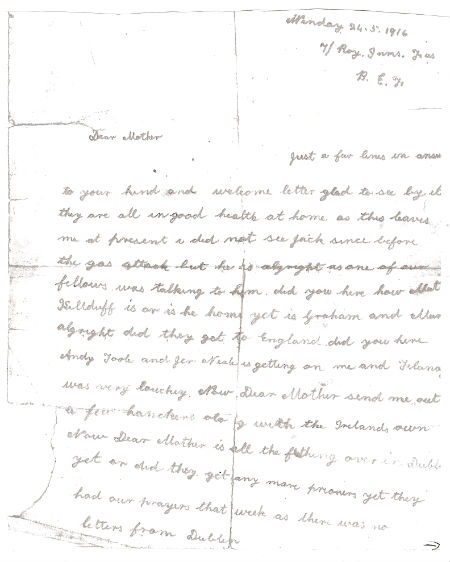 Monday 24.5.1916
7/ Roy. Inns. Fus
B. E. F.
Dear Mother
Just a few lines in answ
to your kind and welcome letter glad to see by it
they are all in good health at home as this leaves
me at present i did not see Jack since before
the gas attack but he is alright as one of our
fellows was talking to him. did you here how
Killduff is or is he home yet is Graham and
alright did they get to England did you here
Andy Toole and Jer Neale is getting on me and
was very louckey. Now Dear Mother send me out
a few hanckers alo g with the Irelands own
Now Dear Mother is all the fithing over in Dubli
yet or did they get any more prioners yet they
had our prayers that week as there was no
letters from Dublin